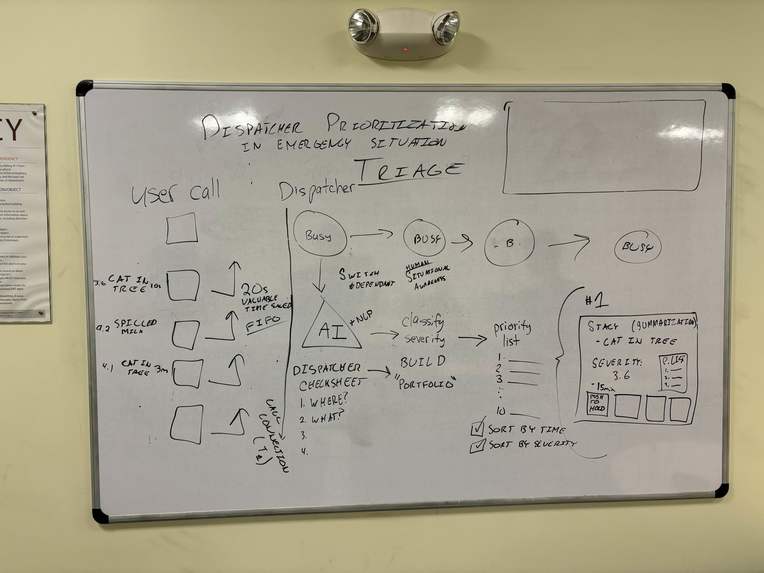 DISPATCHER PRIORITIZATION
IN EMERGENCY SITUATION
TRIAGE
user call
Dispatcher
BUSY
BUSY
B
BUSY
SWITCH
DEPENDANT
HUMAN
SITUATIONAL
AWARENESS
3.6 CAT IN
TREE 10s
20s
VALUABLE
TIME SAVED
FIFO
9.2 SPILLED
MILK
4.1 CAT IN
TREE 3m
CONNECTION
AI
+NLP
classify
severity
priority
list
1.
2
3
10
SORT BY TIME
SORT BY SEVERITY
DISPATCHER
CHECKSHEET
1. WHERE?
2. WHAT?
3.
4.
BUILD
"PORTFOLIO"
#1
STACY (SUMMARIZATION)
- CAT IN TREE
SEVERITY:
3.6
P. LIST
~15m
PUSH
TO
HOLD